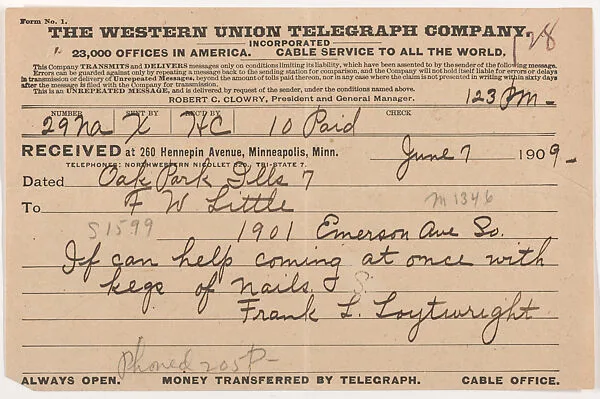 Form No. 1.
THE WESTERN UNION TELEGRAPH COMPANY.
INCORPORATED
23,000 OFFICES IN AMERICA. CABLE SERVICE TO ALL THE WORLD,
This Company TRANSMITS and DELIVERS messages only on conditions limiting its liability, which have been assented to by the sender of the following message.
Errors can be guarded against only by repeating a message back to the sending station for comparison, and the Company will not hold itself liable for errors or delays
in transmission or delivery of Unrepeated Messages, beyond the amount of tolls paid thereon, nor in any case where the claim is not presented in writing within sixty days
after the message is filed with the Company for transmission.
This is an UNREPEATED MESSAGE, and is delivered by request of the sender, under the conditions named above.
ROBERT C. CLOWRY, President and General Manager.
128
123 Pm-
NUMBER SENT BY REC'D BY CHECK
29 na X HC 10 Paid
RECEIVED at 260 Hennepin Avenue, Minneapolis, Minn.
June 7 1909-
TELEPHONES: NORTHWESTERN NICOLLET 520, TRI-STATE 7.
Dated Oak Park Ills 7
To F W Little
M1346
S1599
1901 Emerson Ave So.
If can help coming at once with
kegs of nails. & S.
Frank L. Loytwright
Phoned 205P-
ALWAYS OPEN. MONEY TRANSFERRED BY TELEGRAPH. CABLE OFFICE.